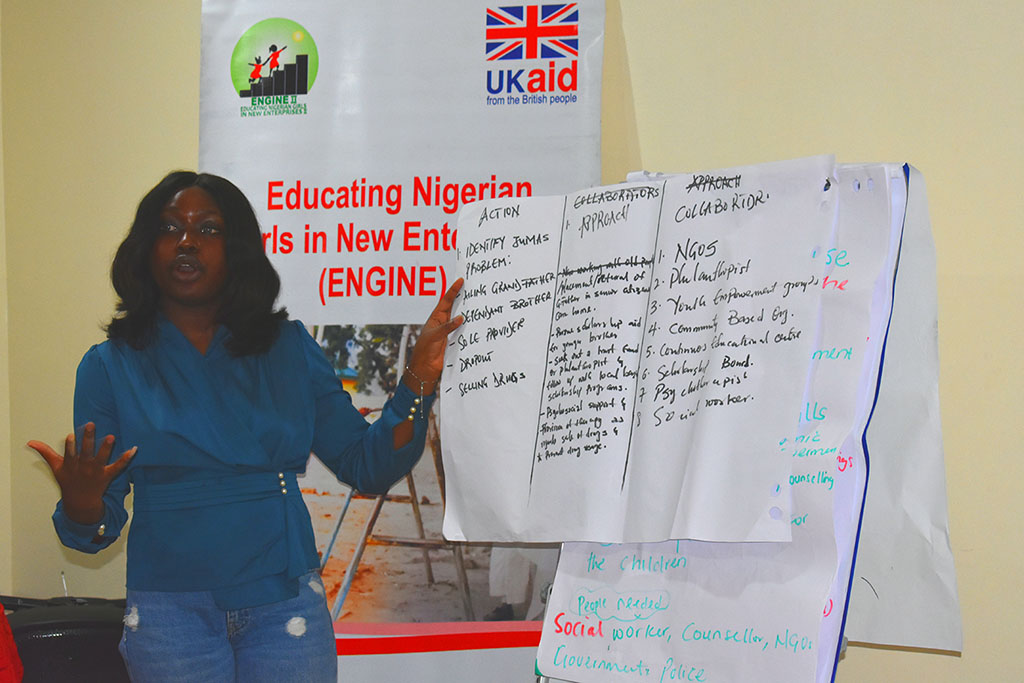 ENGINE II
EDUCATING NIGERIAN GIRLS
IN NEW ENTERPRISES II
UKaid
from the British people
Educating Nigerian
rls in New Ente
(ENGINE)
ACTION
1. IDENTIFY JUMAS
PROBLEM:
- AILING GRAND-FATHER
- DEPENDANT BROTHER
- SOLE PROVIDER
- DROPOUT
- SELLING DRUGS
COLLABORATORS
1. APPROACH
placement/referral of
G/father in senior
care home.
- Pursue scholarship aid
for younger brother
- Seek out a trust fund
or philanthropist &
follow up with local
scholarship programs.
- Psychosocial support &
Provision of therapy as
regards sale of drugs &
drug usage.
APPROACH
COLLABORTOR:
1. NGOS
2. Philanthropist
3. Youth Empowerment groups
4. Community Based Org.
5. Continuous Educational centre
6. Scholarship Board.
7 Psychotherapist
8 Social worker.
se
he
ment
ills
counselling
the children
People needed
Social worker, Counsellor, NGOs
Government, Police